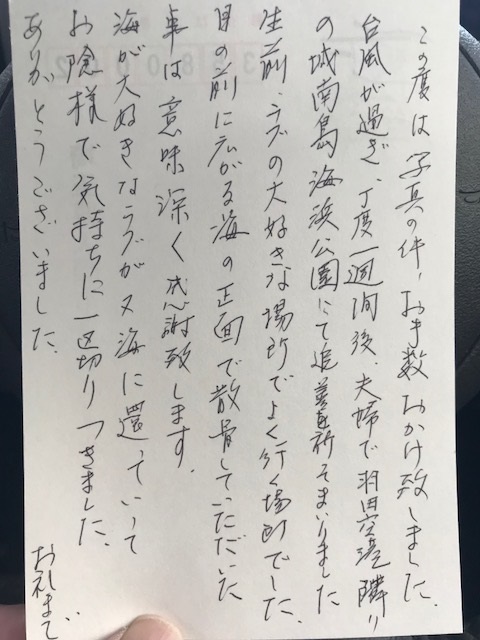 この度は写真の件、お手数おかけ致しました。
台風が過ぎ、丁度一週間後、夫婦で羽田空港隣り
の城南島海浜公園にて追善を祈そまいりました
生前、ラブの大好きな場所でよく行く場所でした。
目の前に広がる海の正面で散骨していただいた
事は意味深く感謝致します。
海が大好きなラブが又海に還っていって
お陰様で気持ちに一区切りつきました。
ありがとうございました。
お礼まで